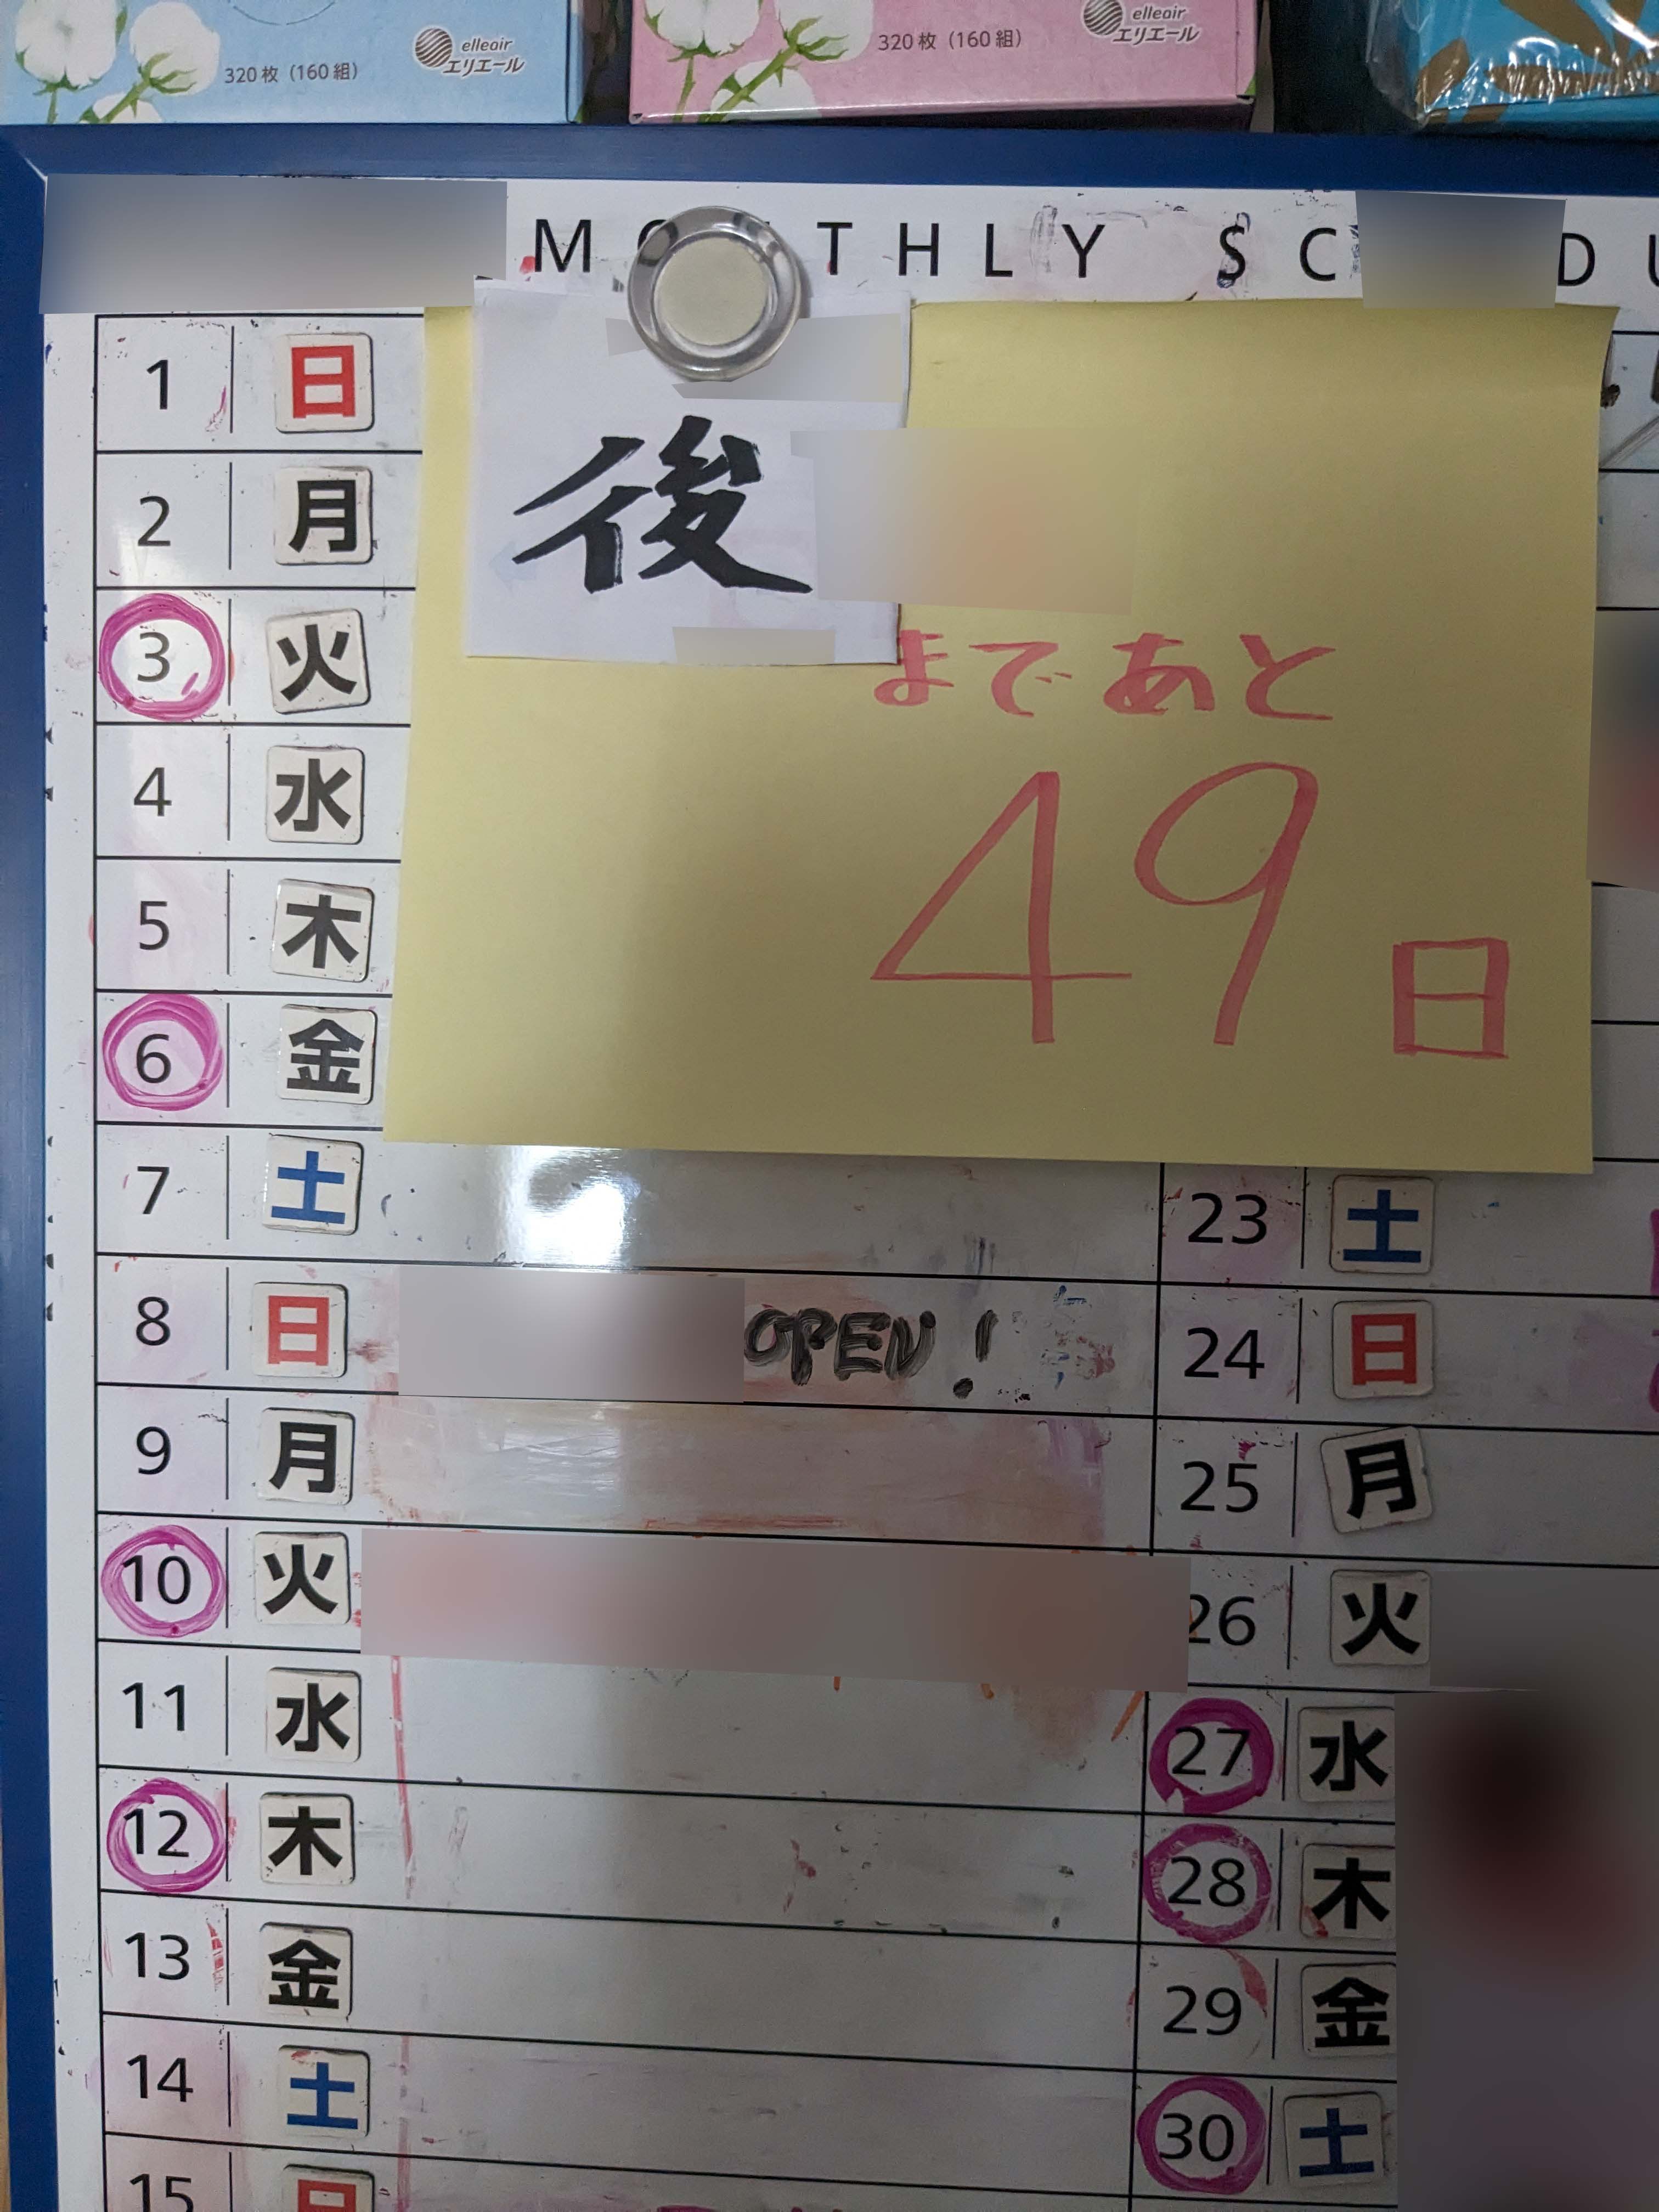 elleair
エリエール
320枚(160組)
elleair
エリエール
320枚(160組)
MONTHLY SC DU
後
まであと
49日
1 日
2 月
3 火
4 水
5 木
6 金
7 土
8 日 OPEN!
9 月
10 火
11 水
12 木
13 金
14 土
15 日
23 土
24 日
25 月
26 火
27 水
28 木
29 金
30 土